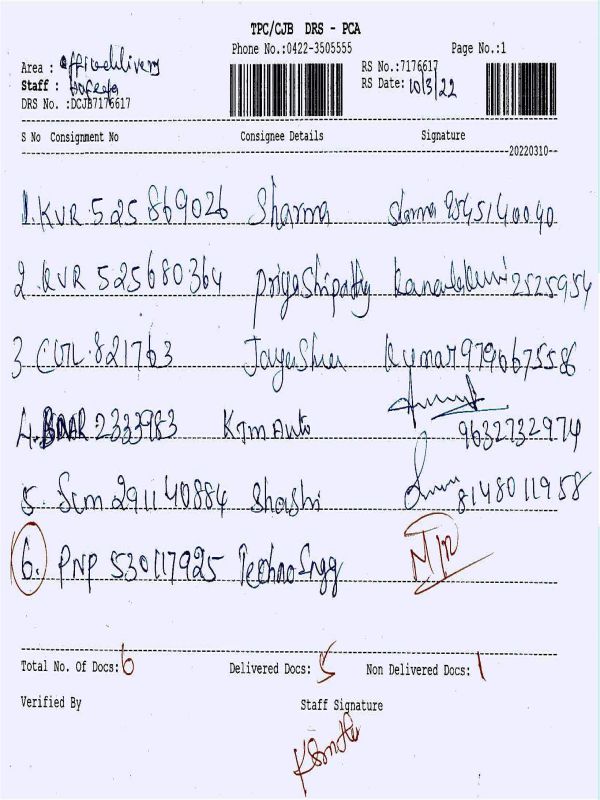 TPC/CJB DRS - PCA
Phone No.:0422-3505555 Page No.:1
Area : officedelivery
Staff :
DRS No. :DCJB7176617
RS No.:7176617
RS Date: 10/3/22
S No Consignment No Consignee Details Signature
20220310
1. KVR 525869026 Sharma Sharma
2. KVR 525680364 Priyashipathy 2525954
3. CUTL 821763 Jayashree Kumar 9790675586
4. 2333983 KTM Auto 9632732974
5. SCM 291140884 Shashi 8148011958
6. PNP 530117925 Techno Engg
Total No. Of Docs: 6 Delivered Docs: 5 Non Delivered Docs: 1
Verified By Staff Signature